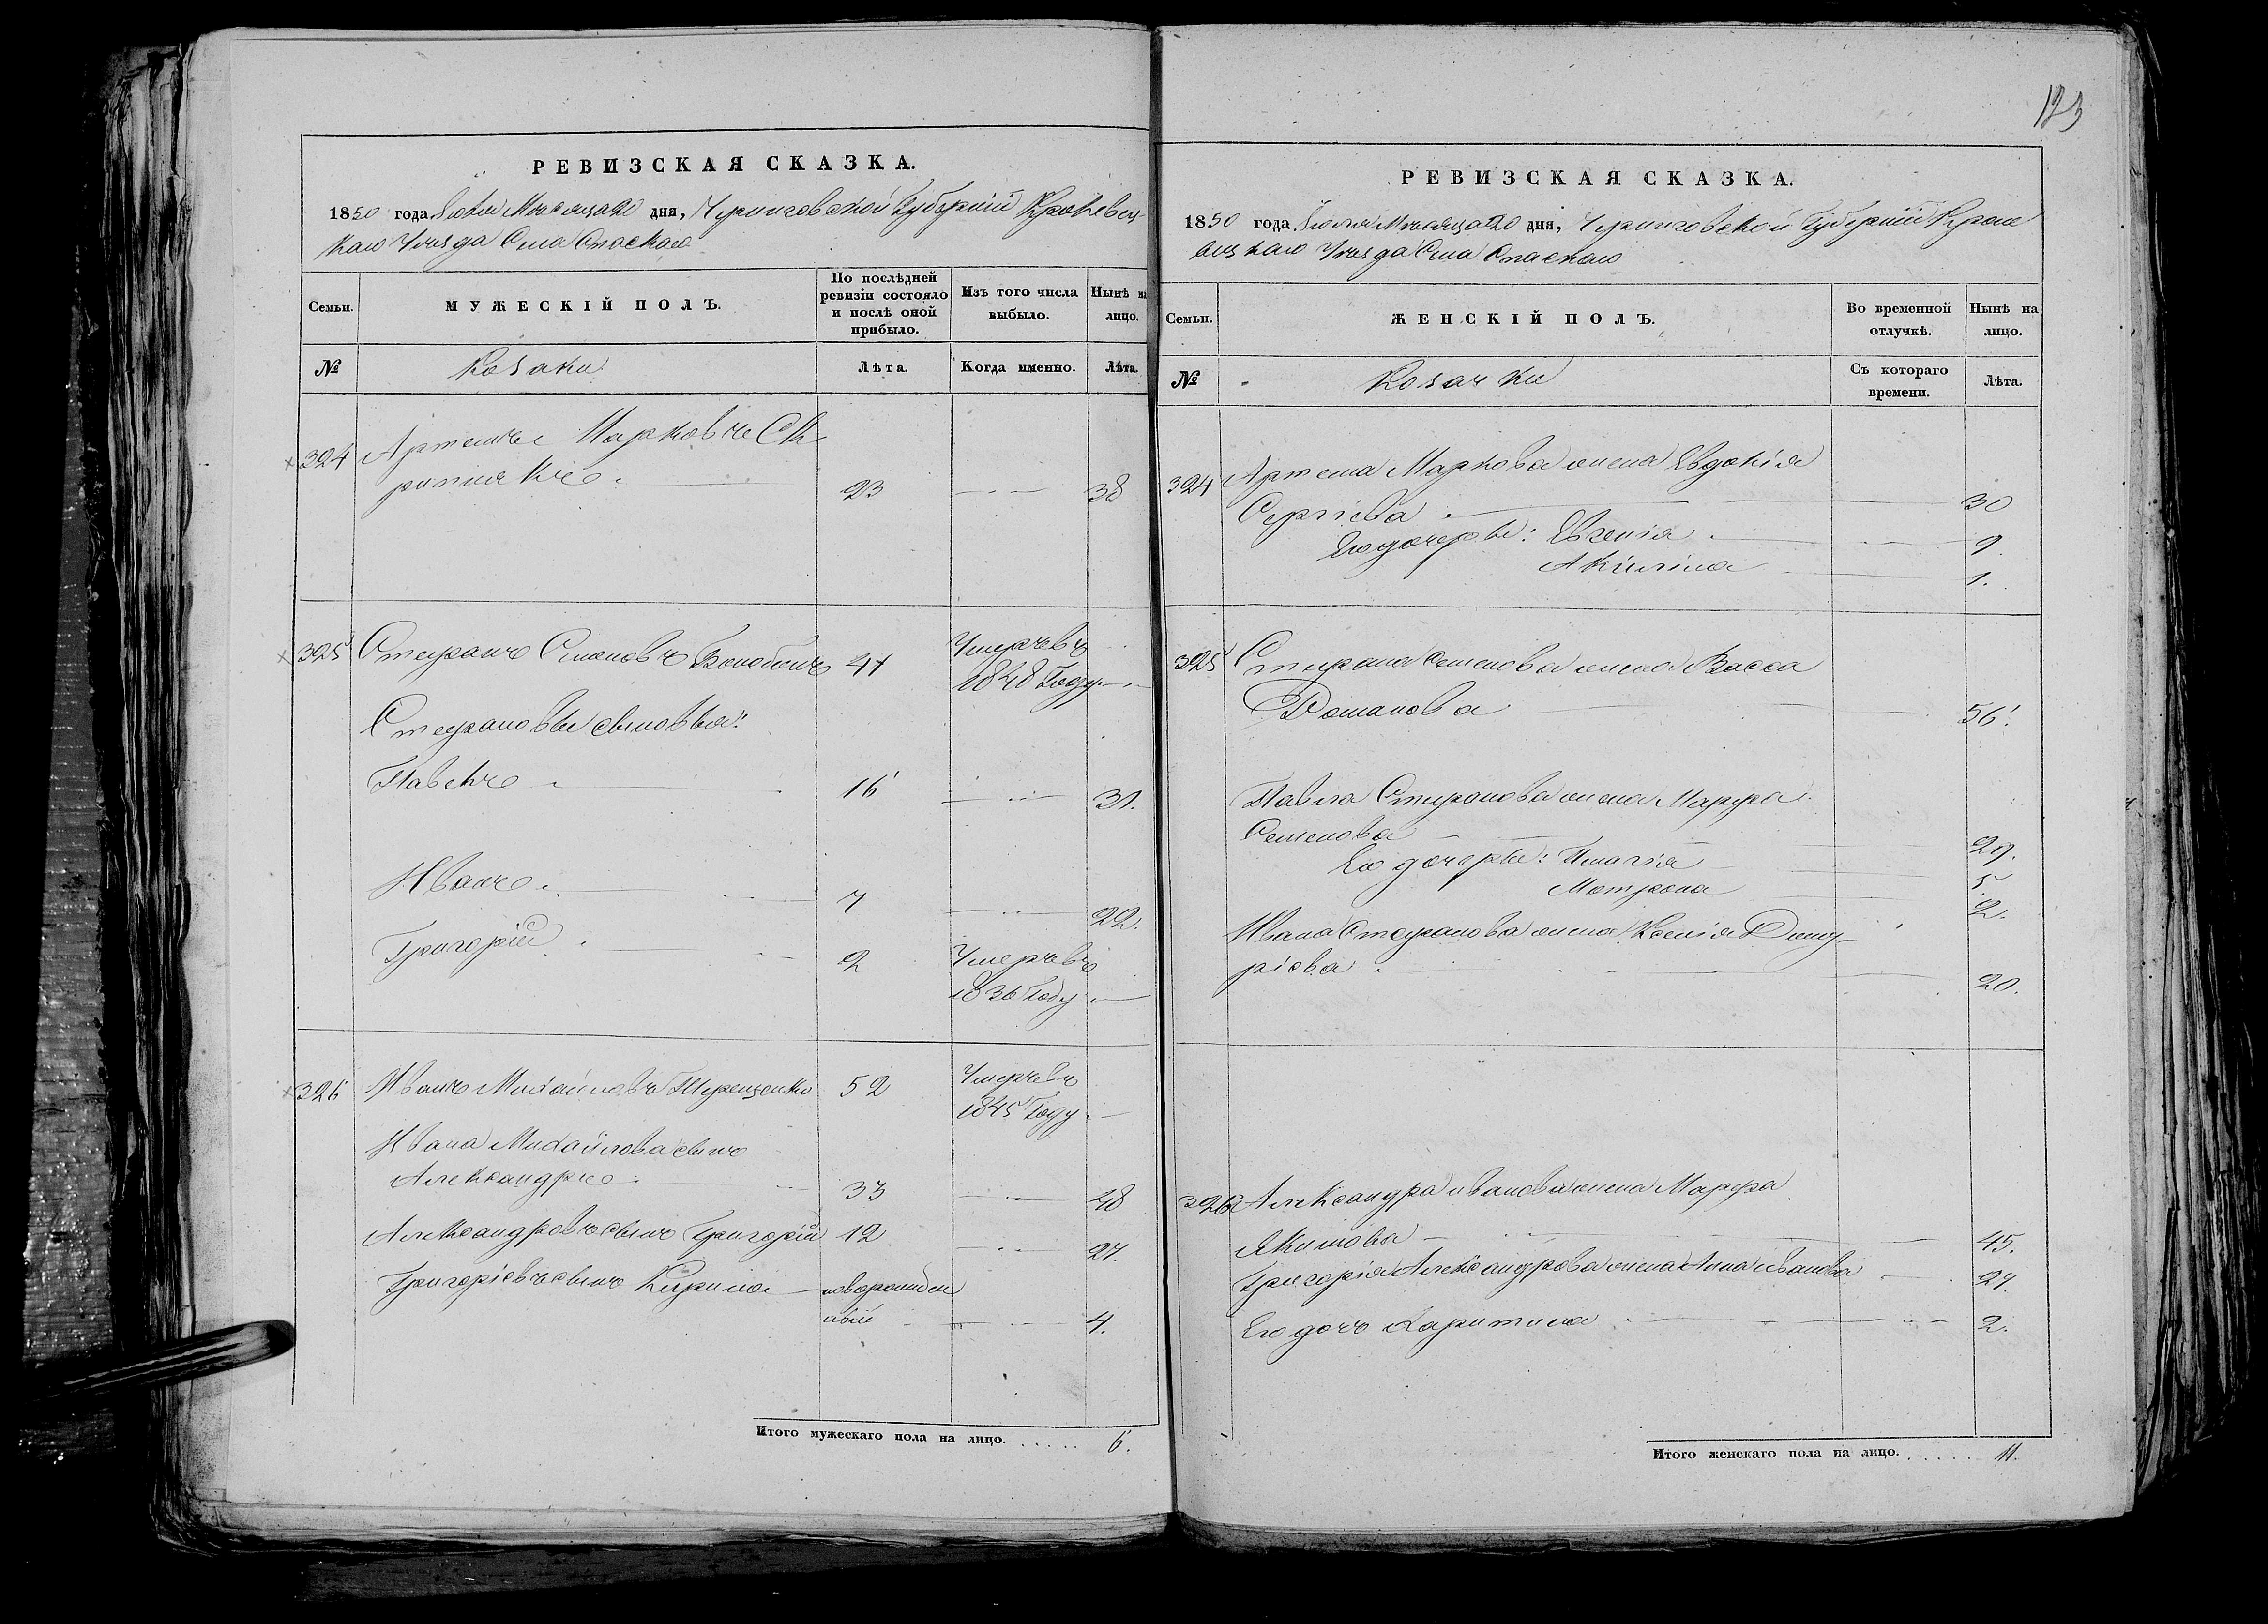 РЕВИЗСКАЯ СКАЗКА.
1850 года Іюля Мѣсяца 20 дня, Черниговской Губерніи Кролевец-
каго Уѣзда Села Спаскаго
Семьи.
МУЖЕСКІЙ ПОЛЪ.
По послѣдней ревизіи состояло и послѣ оной прибыло.
Изъ того числа выбыло.
Нынѣ на лицо.
№
Козаки
Лѣта.
Когда именно.
Лѣта.
324 Артемъ Марковъ
23 38
325 Стефанъ Семеновъ 47 Умеръ въ
1848 Году
Стефановы сыновья:
Павелъ 16 31.
Иванъ 7 22.
Григорій 2 Умеръ въ
1836 Году
326 Иванъ Михайловъ Терещенко 52 Умеръ въ
1845 Году
Ивана Михайлова сынъ
Александръ 33 48
Александровъ сынъ Григорій 12 27.
Григоріевъ сынъ Кирило новорожден
ный 4.
Итого мужескаго пола на лицо. . . . . . 6.
123
РЕВИЗСКАЯ СКАЗКА.
1850 года Іюля Мѣсяца 20 дня, Черниговской Губерніи Кроле
вецкаго Уѣзда Села Спаскаго
Семьи.
ЖЕНСКІЙ ПОЛЪ.
Во временной отлучкѣ.
Нынѣ на лицо.
№
Козачки
Съ котораго времени.
Лѣта.
324 Артема Маркова жена Евдокія
Сергіева 30
Его дочери: Евгенія 9
Акилина 1.
325 Стефана Семенова жена Васса
Романова 56.
Павла Стефанова жена Марфа
Семенова 29.
Его дочери: Пелагія 5.
Мотрона 2.
Ивана Стефанова жена Ксенія Дмит-
ріева 20.
326 Александра Иванова жена Марфа
Якимова 45.
Григорія Александрова жена Анна Иванова 27.
Его дочь Харитина 2.
Итого женскаго пола на лицо. . . . . . 11.